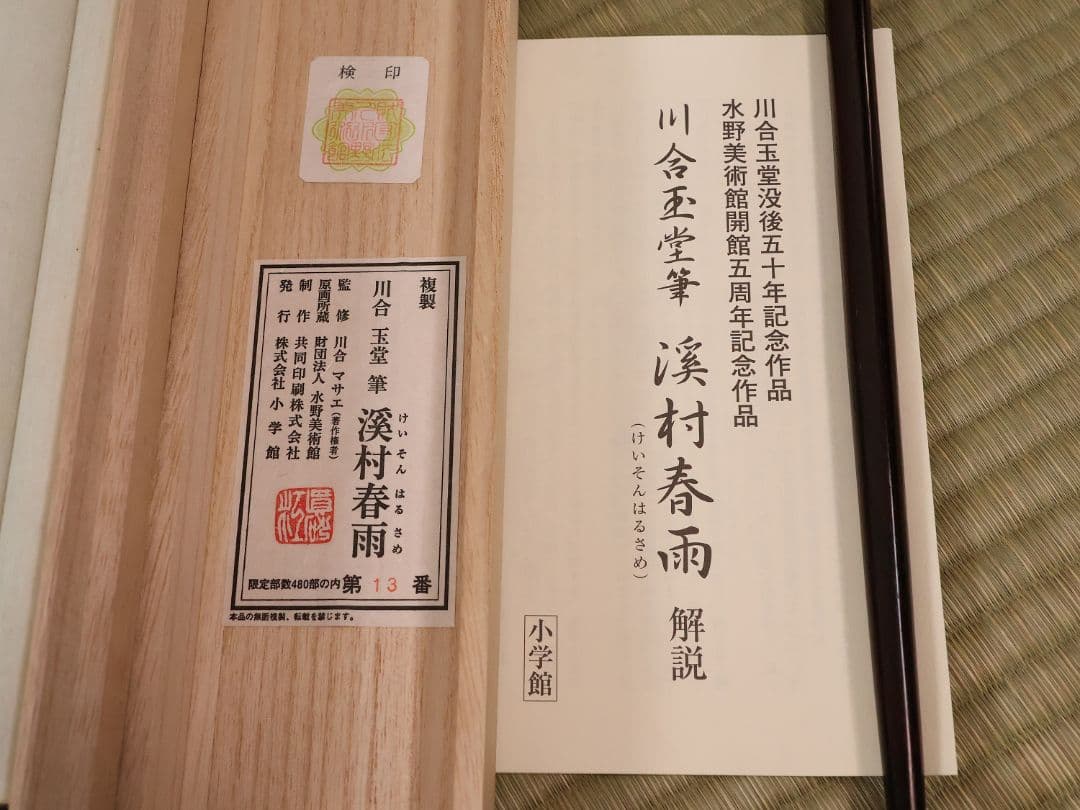 検 印
複製
川合 玉堂 筆 溪村春雨
けいそん はるさめ
監修 川合 マサエ(著作権者)
原画所蔵 財団法人 水野美術館
制作 共同印刷株式会社
発行 株式会社 小学館
限定部数480部の内 第 13 番
本品の無断複製、転載を禁じます。
川合玉堂没後五十年記念作品
水野美術館開館五周年記念作品
川合玉堂筆 溪村春雨 解説
(けいそんはるさめ)
小学館